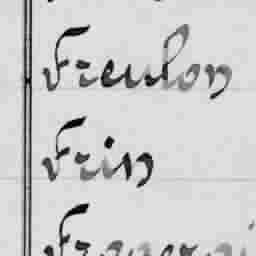 Freulon
Frin